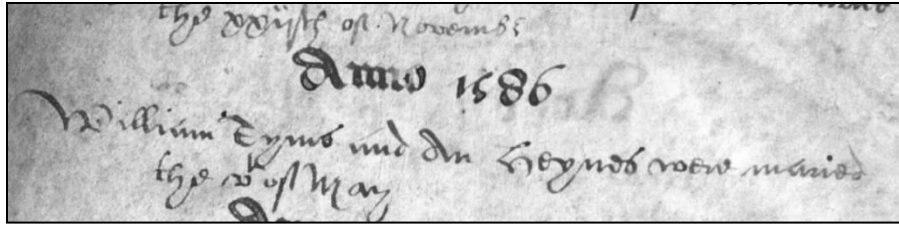 the xxiijth of Novembr
Anno 1586
William Tyms and An Heynes were maried
the v of May